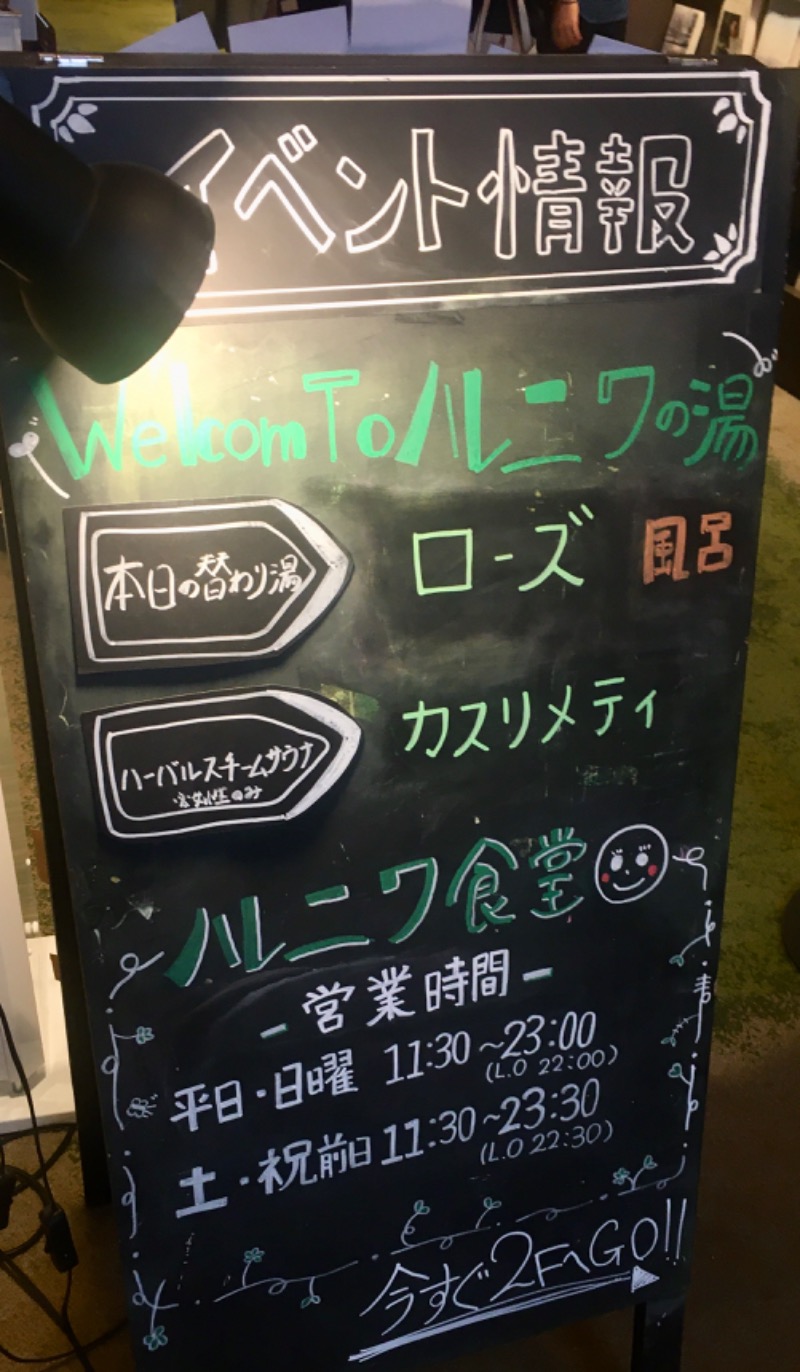 イベント情報
Welcom To ハルニワの湯
本日の替わり湯 ローズ 風呂
ハーバルスチームサウナ カスリメティ
※女性のみ
ハルニワ食堂
-営業時間-
平日・日曜 11:30~23:00
(L.O 22:00)
土・祝前日 11:30~23:30
(L.O 22:30)
今すぐ2FへGO!!